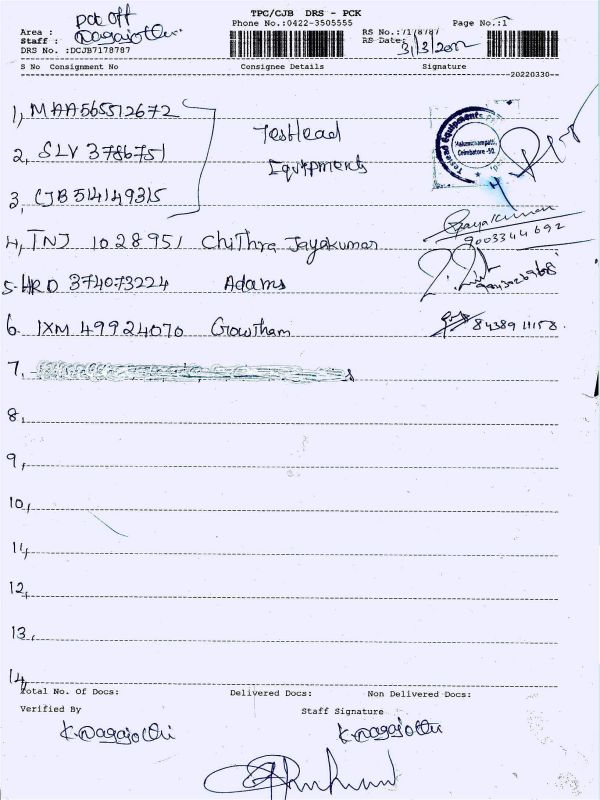 TPC/CJB DRS - PCK
Phone No.:0422-3505555
Page No.:1
pck off
Area :
Staff : Nagajothi
DRS No. :DCJB7178787
RS No.:7178787
RS Date: 31/3/2022
S No Consignment No Consignee Details Signature
20220330
1, MAA565512672
2, SLV 3786751
3, CJB 514149315
Testlead
Equipments
Testlead Equipments
Malumichampatti,
Coimbatore -50.
4, TNJ 1028951 Chithra Jayakumar
Jayakumar
9003344692
5. HRD 374073224 Adams
6. IXM 49924070 Gowtham 84389 11158.
7,
8,
9,
10,
11,
12,
13,
14,
Total No. Of Docs: Delivered Docs: Non Delivered Docs:
Verified By Staff Signature
K. Nagajothi K. Nagajothi